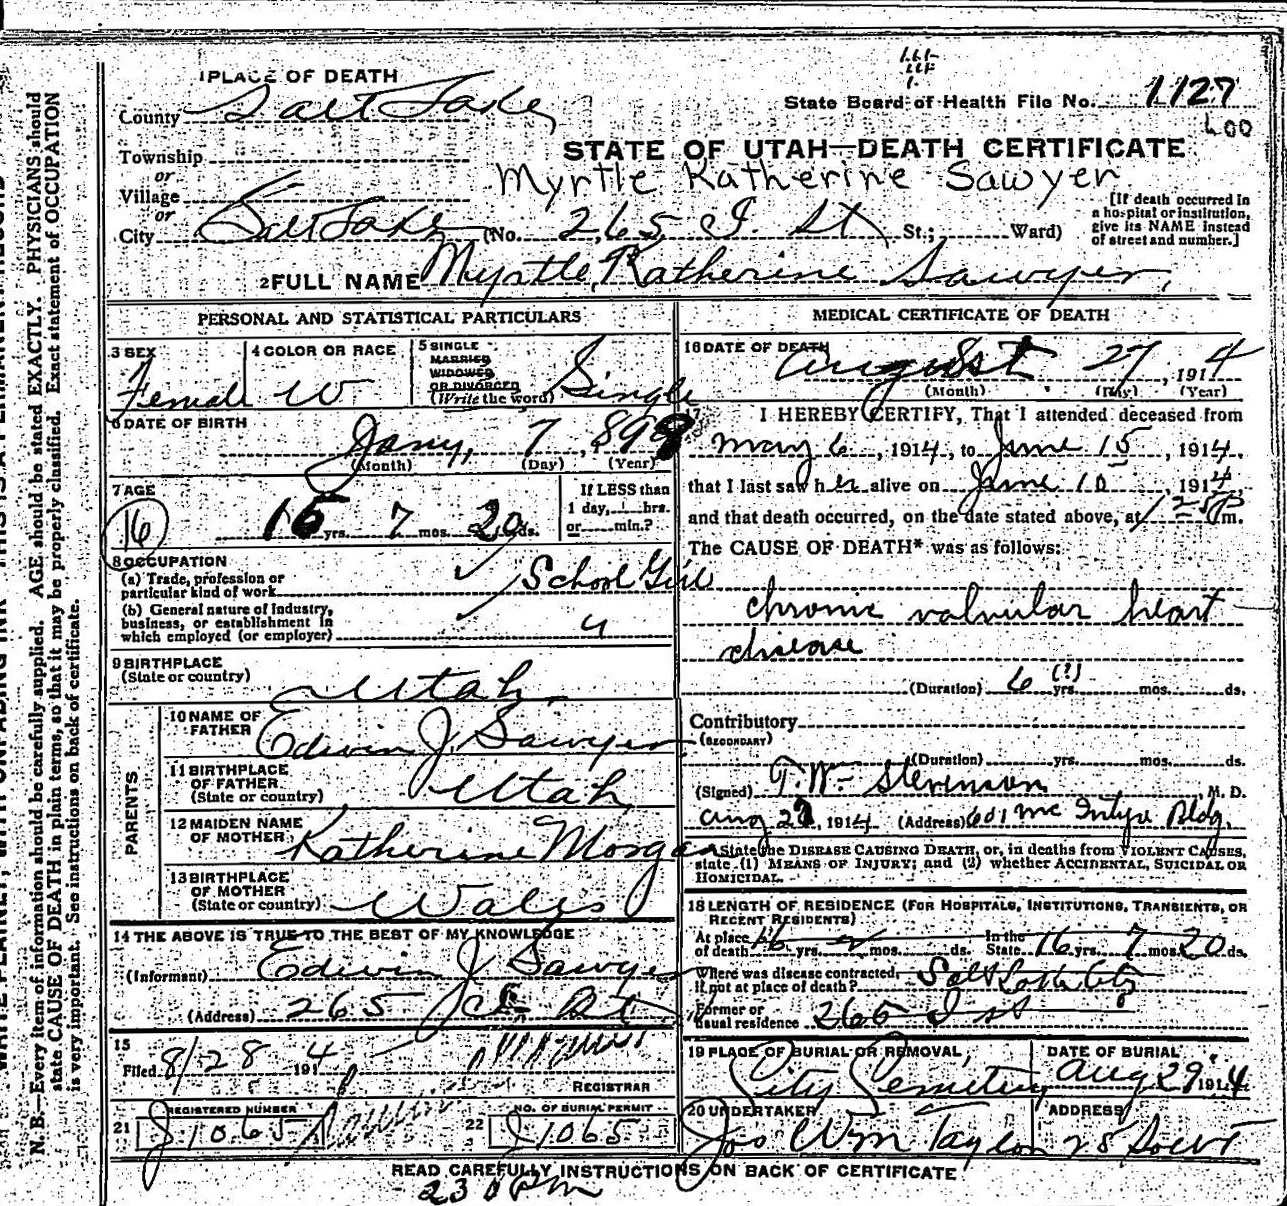 1 PLACE OF DEATH
County Salt Lake
State Board of Health File No. 1127
600
STATE OF UTAH—DEATH CERTIFICATE
Township
or
Village
or
City Salt Lake
Myrtle Katherine Sawyer
(No. 265 I. St St.; Ward)
[If death occurred in
a hospital or institution,
give its NAME instead
of street and number.]
2 FULL NAME Myrtle Katherine Sawyer,
PERSONAL AND STATISTICAL PARTICULARS
3 SEX
Female
4 COLOR OR RACE
W
5 SINGLE
MARRIED
WIDOWED
OR DIVORCED
(Write the word) Single
6 DATE OF BIRTH
Jany, 7, 898
(Month) (Day) (Year)
7 AGE
16
16 yrs. 7 mos. 20 ds.
If LESS than
1 day, hrs.
or min.?
8 OCCUPATION
(a) Trade, profession or
particular kind of work School Girl
(b) General nature of Industry,
business, or establishment in
which employed (or employer) "
9 BIRTHPLACE
(State or country)
Utah
PARENTS
10 NAME OF
FATHER Edwin J. Sawyer
11 BIRTHPLACE
OF FATHER
(State or country) Utah
12 MAIDEN NAME
OF MOTHER Katherine Morgan
13 BIRTHPLACE
OF MOTHER
(State or country) Wales
14 THE ABOVE IS TRUE TO THE BEST OF MY KNOWLEDGE
(Informant) Edwin J Sawyer
(Address) 265 St
15
Filed 8/28 1914
REGISTRAR
REGISTERED NUMBER
21 J1065
NO. OF BURIAL PERMIT
22 J1065
MEDICAL CERTIFICATE OF DEATH
16 DATE OF DEATH
August 27, 1914
(Month) (Day) (Year)
17
I HEREBY CERTIFY, That I attended deceased from
may 6, 1914, to June 15, 1914,
that I last saw her alive on June 10, 1914
and that death occurred, on the date stated above, at 1 25 P m.
The CAUSE OF DEATH* was as follows:
chronic valvular heart
disease
(Duration) 6 (?) yrs. mos. ds.
Contributory
(SECONDARY)
(Duration) yrs. mos. ds.
(Signed) T. Wm Stevenson, M. D.
Aug 28, 1914 (Address) 601 Mc Intyre Bldg.
State the DISEASE CAUSING DEATH, or, in deaths from VIOLENT CAUSES,
state (1) MEANS OF INJURY; and (2) whether ACCIDENTAL, SUICIDAL OR
HOMICIDAL.
18 LENGTH OF RESIDENCE (FOR HOSPITALS, INSTITUTIONS, TRANSIENTS, OR
RECENT RESIDENTS)
At place
of death 16 yrs. mos. ds. In the
State 16 yrs. 7 mos. 20 ds.
Where was disease contracted,
if not at place of death? Salt Lake City
Former or
usual residence 265 I st
19 PLACE OF BURIAL OR REMOVAL,
City Cemetery
DATE OF BURIAL
Aug 29 1914
20 UNDERTAKER
Jos Wm Taylor
ADDRESS
READ CAREFULLY INSTRUCTIONS ON BACK OF CERTIFICATE
N. B.—Every item of information should be carefully supplied. AGE should be stated EXACTLY. PHYSICIANS should
state CAUSE OF DEATH in plain terms, so that it may be properly classified. Exact statement of OCCUPATION
is very important. See instructions on back of certificate.